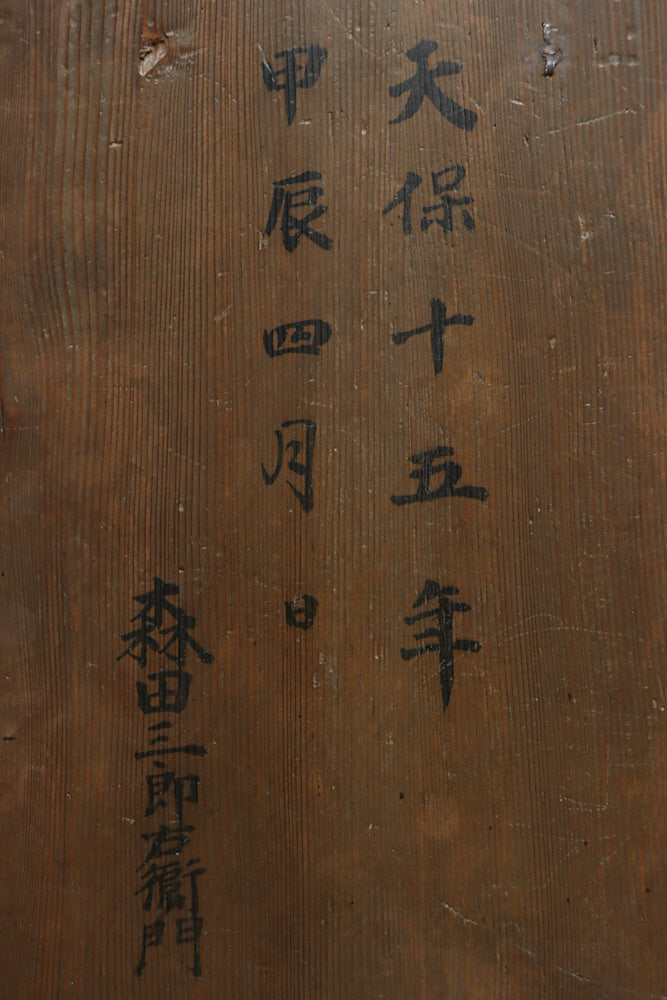 天保十五年
甲辰四月日
森田三郎右衛門